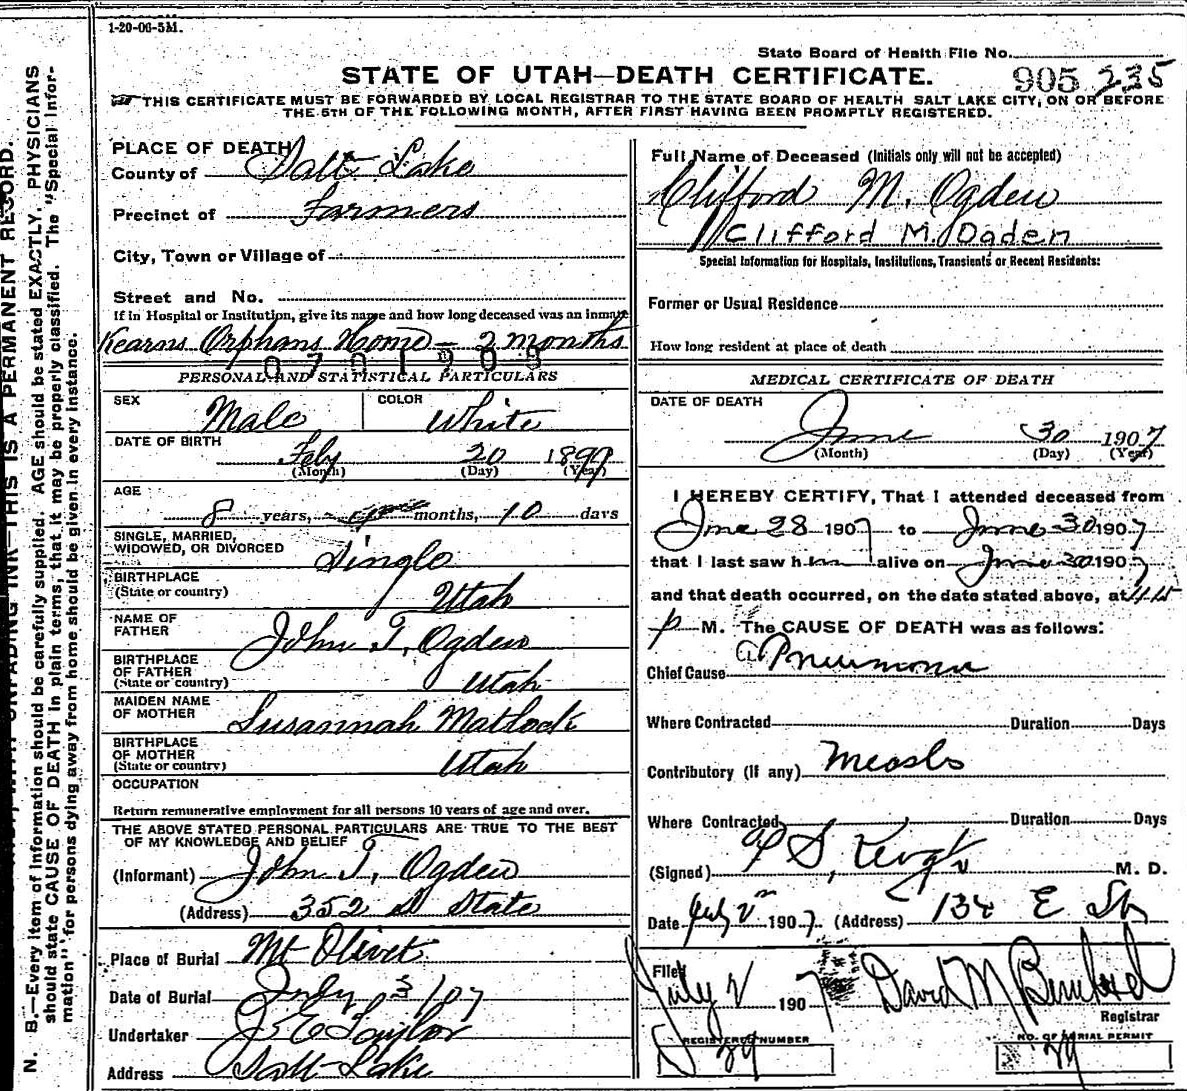 1-20-06-5M.
State Board of Health File No.
STATE OF UTAH—DEATH CERTIFICATE. 905 235
THIS CERTIFICATE MUST BE FORWARDED BY LOCAL REGISTRAR TO THE STATE BOARD OF HEALTH SALT LAKE CITY, ON OR BEFORE
THE 5TH OF THE FOLLOWING MONTH, AFTER FIRST HAVING BEEN PROMPTLY REGISTERED.
N. B.—Every item of information should be carefully supplied. AGE should be stated EXACTLY, PHYSICIANS
should state CAUSE OF DEATH in plain terms, that it may be properly classified. The "Special Infor-
mation" for persons dying away from home should be given in every instance.
UNFADING INK—THIS IS A PERMANENT RECORD.
PLACE OF DEATH
County of Salt Lake
Precinct of Farmers
City, Town or Village of
Street and No.
If in Hospital or Institution, give its name and how long deceased was an inmate
Kearns Orphans Home — 2 months
0701209
PERSONAL AND STATISTICAL PARTICULARS
SEX Male COLOR White
DATE OF BIRTH
Feby 20 1899
(Month) (Day) (Year)
AGE
8 years, months, 10 days
SINGLE, MARRIED,
WIDOWED, OR DIVORCED Single
BIRTHPLACE
(State or country) Utah
NAME OF
FATHER John T. Ogden
BIRTHPLACE
OF FATHER
(State or country) Utah
MAIDEN NAME
OF MOTHER Susannah Matlock
BIRTHPLACE
OF MOTHER
(State or country) Utah
OCCUPATION
Return remunerative employment for all persons 10 years of age and over.
THE ABOVE STATED PERSONAL PARTICULARS ARE TRUE TO THE BEST
OF MY KNOWLEDGE AND BELIEF
(Informant) John T. Ogden
(Address) 352 State
Place of Burial Mt Olivet
Date of Burial July 3/07
Undertaker J. E. Taylor
Address Salt Lake
Full Name of Deceased (Initials only will not be accepted)
Clifford M. Ogden
Clifford M. Ogden
Special Information for Hospitals, Institutions, Transients or Recent Residents:
Former or Usual Residence
How long resident at place of death
MEDICAL CERTIFICATE OF DEATH
DATE OF DEATH
June 30 1907
(Month) (Day) (Year)
I HEREBY CERTIFY, That I attended deceased from
June 28 1907 to June 30 1907
that I last saw him alive on June 30 1907
and that death occurred, on the date stated above, at
p M. The CAUSE OF DEATH was as follows:
Chief Cause Pneumonia
Where Contracted Duration Days
Contributory (if any) Measles
Where Contracted Duration Days
(Signed) M. D.
Date July 2 1907 (Address) 134 E
Filed
July 2 1907 David M
Registrar
REGISTERED NUMBER NO. OF BURIAL PERMIT
29